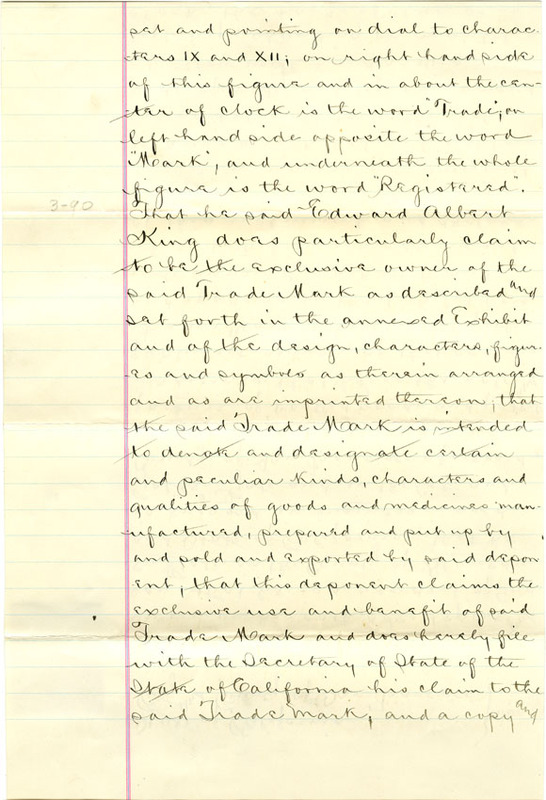 set and pointing on dial to charac-
ters IX and XII; on right hand side
of this figure and in about the cen-
ter of clock is the word "Trade"; on
left hand side opposite the word
"Mark", and underneath the whole
figure is the word "Registered".
3-90
That he said Edward Albert
King does particularly claim
to be the exclusive owner of the
said Trade Mark as described and
set forth in the annexed Exhibit
and of the design, characters, figur-
es and symbols as therein arranged
and as are imprinted thereon; that
the said Trade Mark is intended
to denote and designate certain
and peculiar kinds, characters and
qualities of goods and medicines man-
ufactured, prepared and put up by
and sold and exported by said depon
ent, that this deponent claims the
exclusive use and benefit of said
Trade Mark and does hereby file
with the Secretary of State of the
State of California his claim to the
said Trade Mark, and a copy and